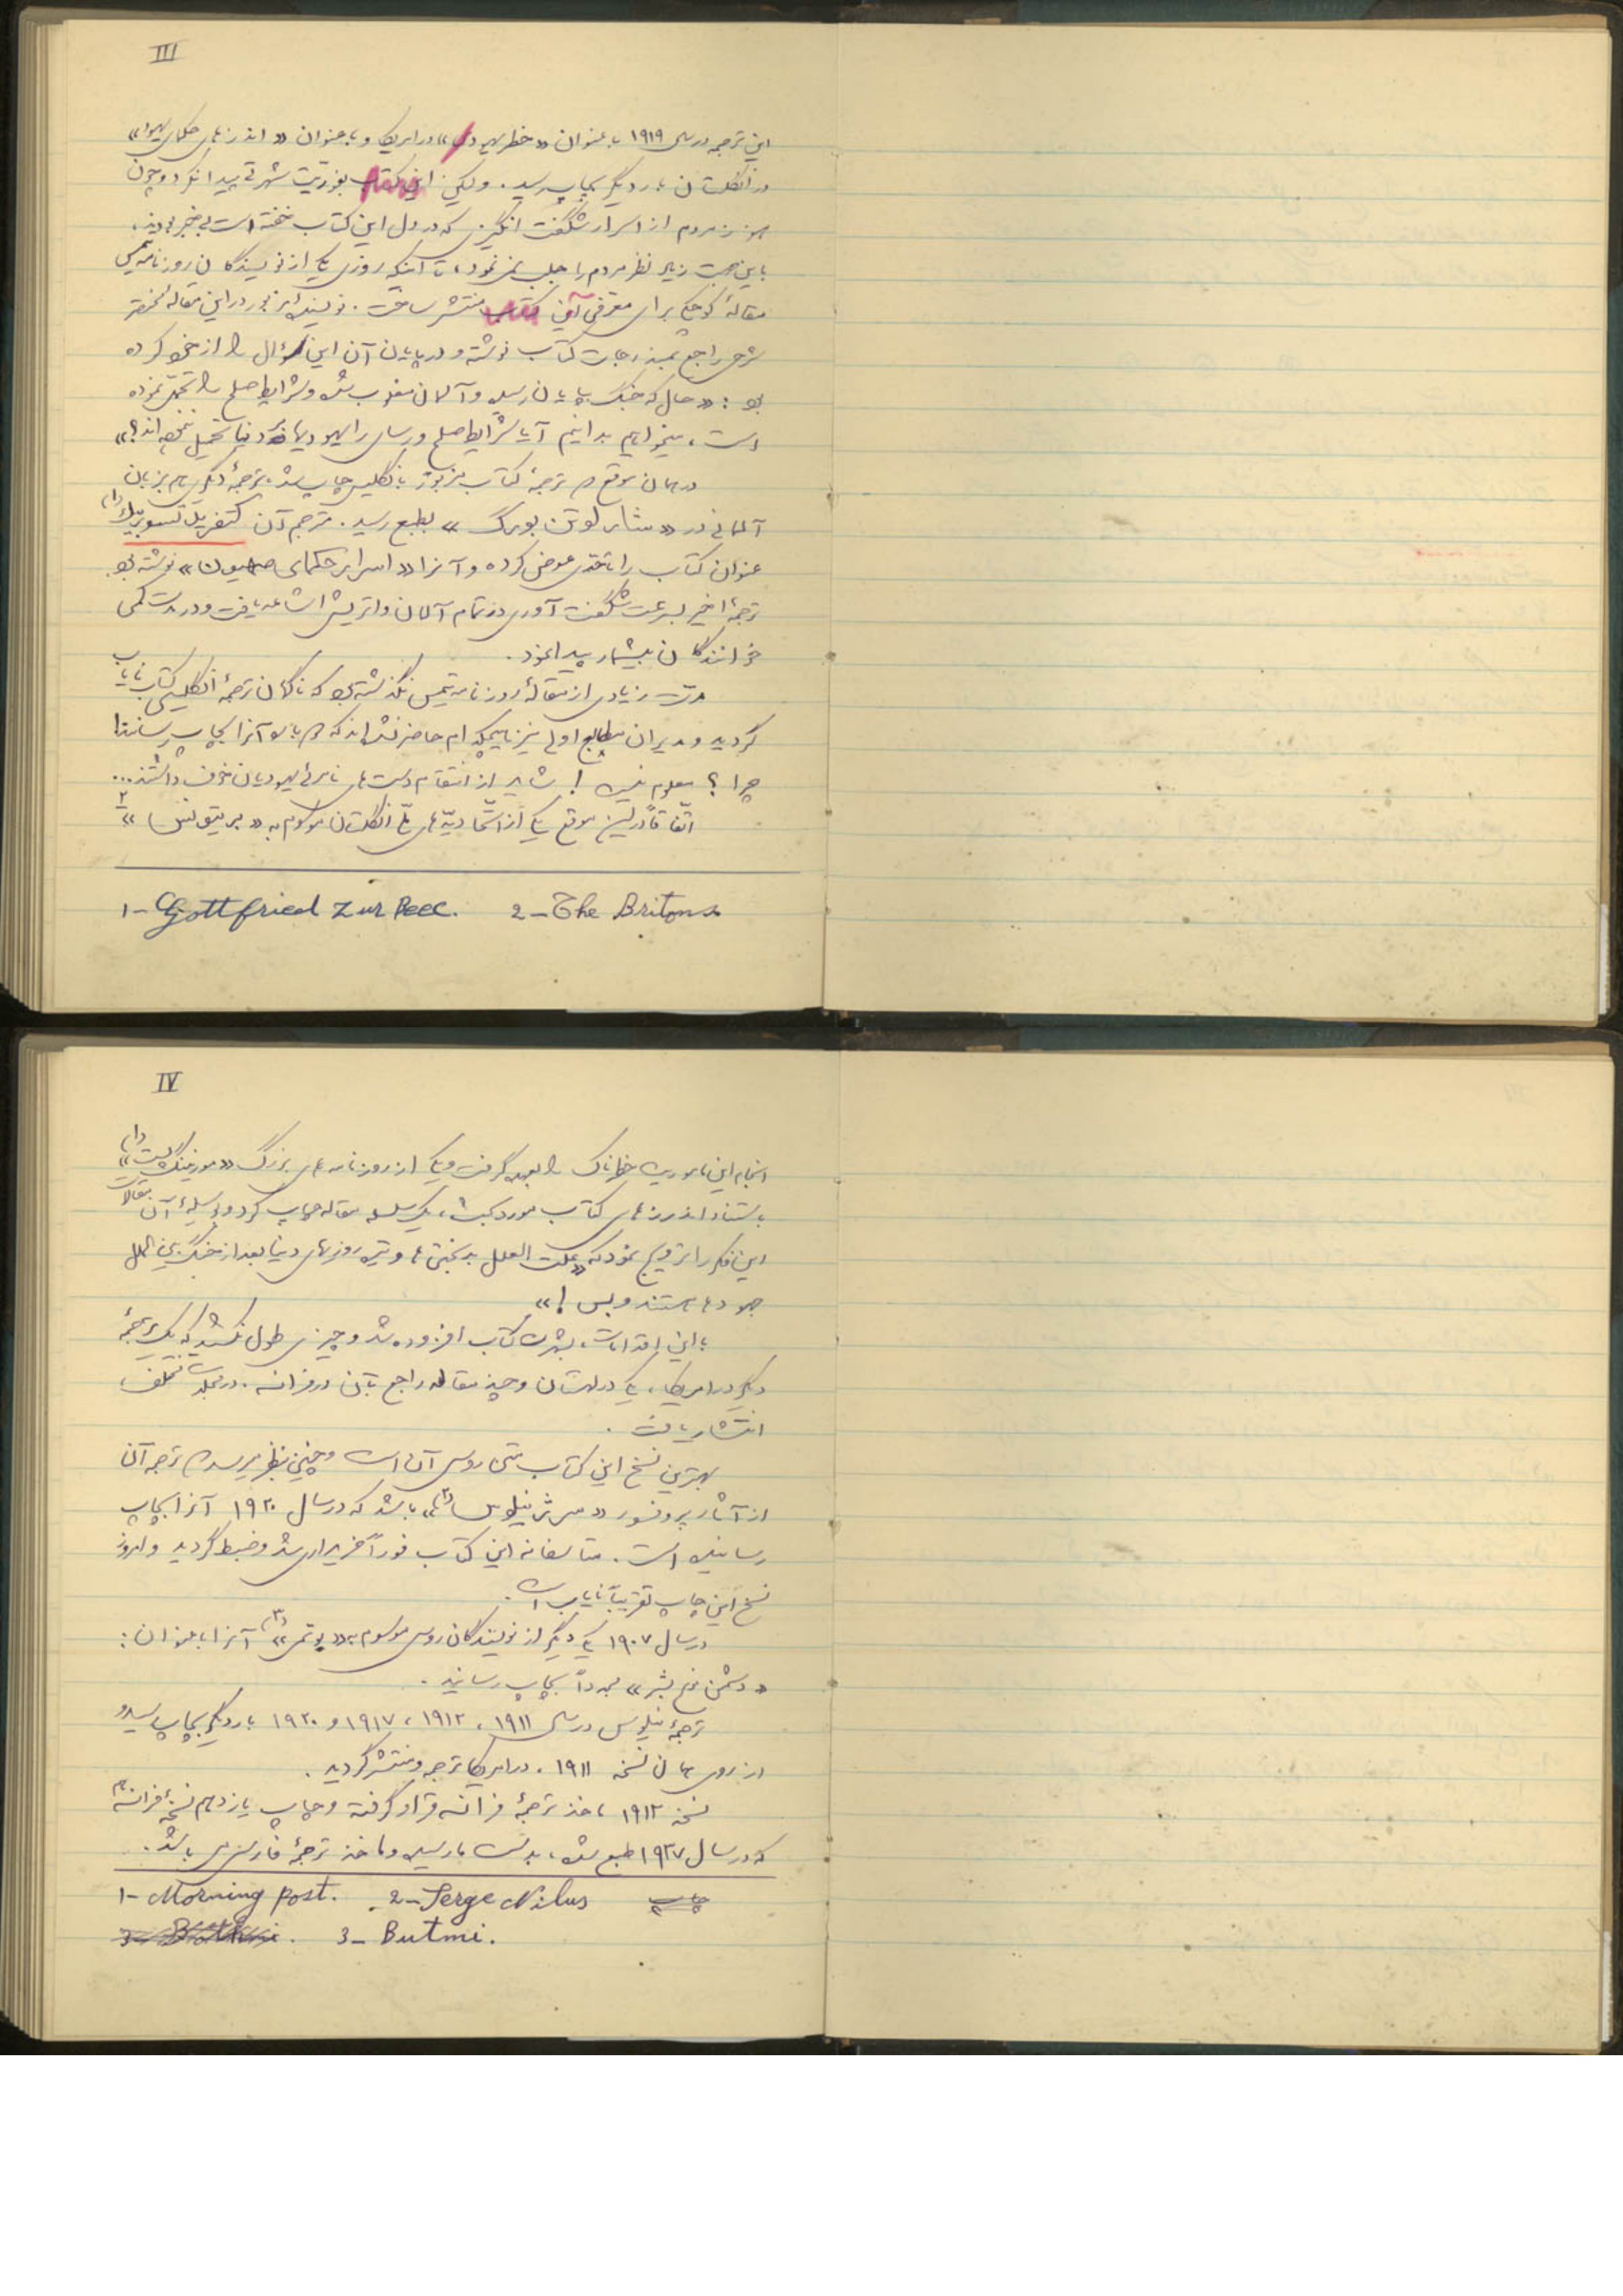 III
این ترجمه در سال ۱۹۱۹ با عنوان «خطر یهود» در امریکا و با عنوان «اندرزهای حکمای یهود»
در انگلستان بار دیگر بچاپ رسید. ولیکن این کتاب بفوریت شهرتی پیدا نکرد و چون
هنوز مردم از اسرار شگفت انگیزی که در دل این کتاب خفته است بی خبر بودند،
باین جهت زیاد نظر مردم را جلب نمی نمود، تا اینکه روزی یکی از نویسندگان روزنامه تیمس
مقالهٔ کوچکی برای معرفی این کتاب منتشر ساخت. نویسندهٔ مزبور در این مقالهٔ مختصر
شرحی راجع بمندرجات کتاب نوشته و در پایان آن این سؤال را از خود کرده
بود: «حال که جنگ بپایان رسیده و آلمان مغلوب شده و شرایط صلح را تحمل نموده
است، میخواهیم بدانیم آیا شرایط صلح ورسای را یهودیها بر دنیا تحمیل ننموده اند؟»
در همان موقع که ترجمهٔ کتاب مزبور بانگلیسی چاپ شد، ترجمهٔ دیگری هم بزبان
آلمانی در «شارلوتن بورگ» بطبع رسید. مترجم آن گتفرید تسوربیک (۱)
عنوان کتاب را تا حدی عوض کرده و آنرا «اسرار حکمای صهیون» نوشته بود.
ترجمهٔ اخیر بسرعت شگفت آوری در تمام آلمان و اتریش اشاعه یافت و در مدت کمی
خوانندگان بیشمار پیدا نمود.
مدت زیادی از مقالهٔ روزنامه تیمس نگذشته بود که ناگهان ترجمهٔ انگلیسی کتاب نایاب
گردید و مدیران مطابع اولی نیز بهیچکدام حاضر نشدند که دوباره آنرا بچاپ برسانند!
چرا؟ معلوم نیست! شاید از انتقام دست های نامرئی یهودیان خوف داشتند...
اتفاقاً در این موقع یکی از اتحادیه های ملی انگلستان موسوم به «بریتونس» ۲
1- Gottfried Zur Beec. 2- The Britons
IV
انجام این ماموریت خطرناک را بعهده گرفت و یکی از روزنامه های بزرگ «مورنینگ پست» (۱)
باستناد اندرزهای کتاب مورد بحث، یک سلسله مقاله چاپ کرد و بوسیلهٔ آن مقالات
این فکر را ترویج نمود که «علت العلل بدبختی ها و تیره روزیهای دنیا بعد از جنگ بین الملل
جهودها هستند و بس!»
با این اقدامات، بشهرت کتاب افزوده شد و چیزی طول نکشید که یک ترجمهٔ
دیگر در امریکا، یکی در لهستان و چند مقاله راجع بآن در فرانسه، در مجلات مختلف
انتشار یافت.
بهترین نسخ این کتاب متن روسی آن است و چنین بنظر میرسد که ترجمه آن
از آثار پروفسور «سرژ نیلوس» (۲) باشد که در سال ۱۹۲۰ آنرا بچاپ
رسانیده است. متاسفانه این کتاب فوراً خریداری شد و ضبط گردید و امروز
نسخ این چاپ تقریباً نایاب است.
در سال ۱۹۰۷ یکی دیگر از نویسندگان روسی موسوم به «بوتمی» (۳) آنرا با عنوان:
«دشمن نوع بشر» مجدداً بچاپ رسانید.
ترجمهٔ نیلوس در سال ۱۹۱۱، ۱۹۱۲، ۱۹۱۷ و ۱۹۲۰ بار دیگر بچاپ رسید و
از روی همان نسخه ۱۹۱۱، در امریکا ترجمه و منتشر گردید.
نسخهٔ ۱۹۱۲ ماخذ ترجمهٔ فرانسه قرار گرفته و چاپ یازدهم نسخهٔ فرانسه
که در سال ۱۹۳۷ طبع شده، بدست ما رسیده و ماخذ ترجمهٔ فارسی می باشد.
1- Morning post. 2- Serge Nilus چاپ
3- Butmi.